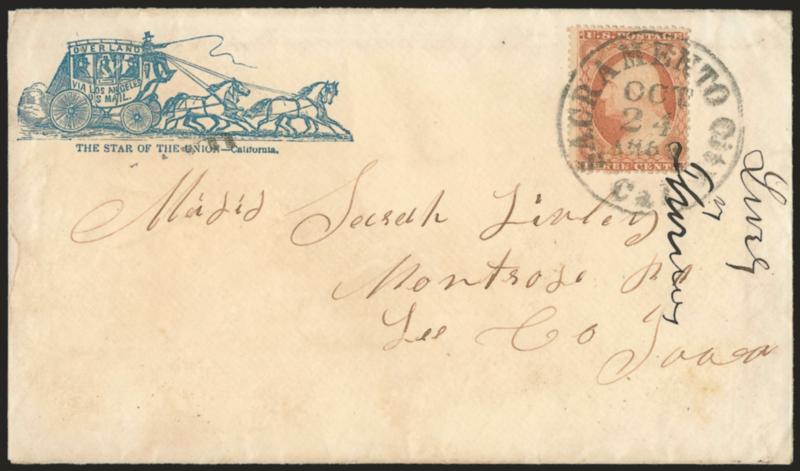 OVERLAND
VIA LOS ANGELES
U.S MAIL
THE STAR OF THE UNION—California.
U.S. POSTAGE
THREE CENTS
SACRAMENTO City
OCT
24
1860
Cal.
Sarah Livley
Montrose Po
Lee Co Iowa